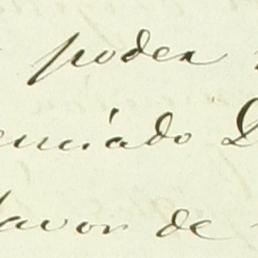 poder
enciado
favor de